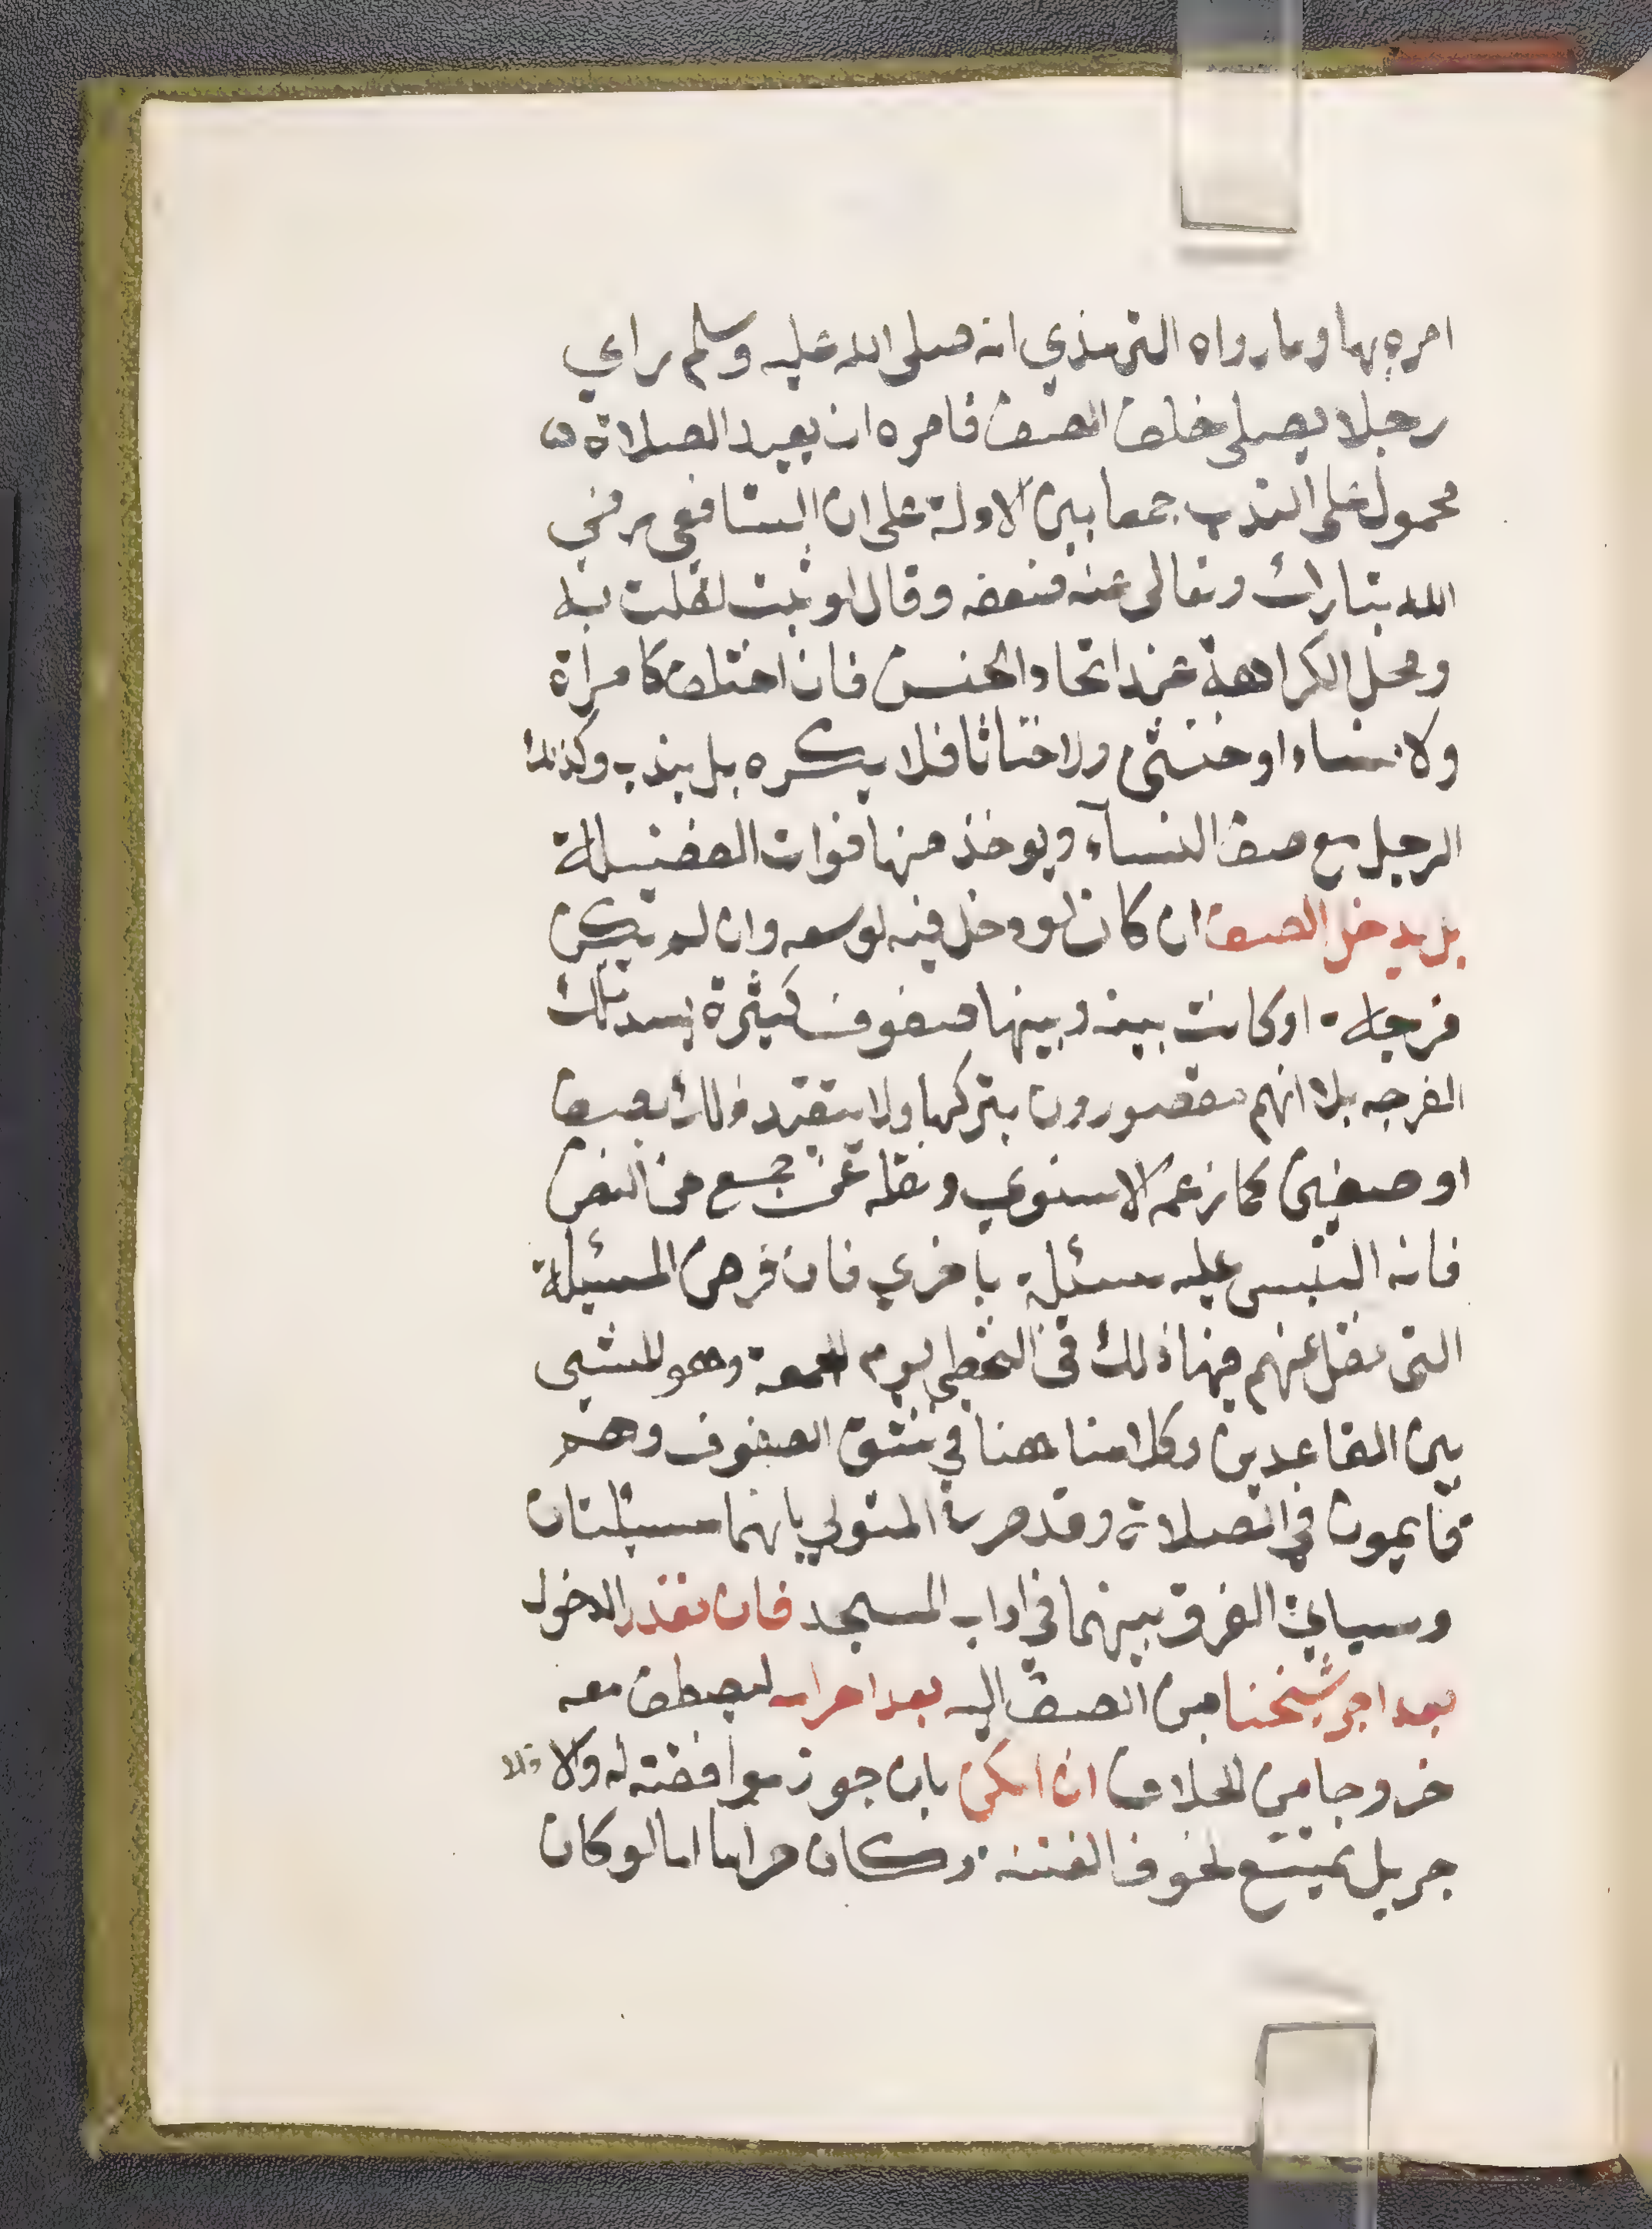 امره بها وما رواه الترمذي انه صلى الله عليه وسلم راي
رجلا يصلى خلف الصف فامره ان يعيد الصلاة
محمول على الندب جمعا بين الادلة على ان الشافعي رضي
الله تبارك وتعالى عنه ضعفه وقال لو ثبت لقلت به
ومحل الكراهة عند اتحاد الجنس فان اختلف كامراة
ولا نساء او خنثى ولا خناثا فلا يكره بل يندب وكذلك
الرجل مع صف النسآء ويوخذ منها فوات الفضيلة
بل يدخل الصف ان كان لو دخل فيه لوسعه وان لم تكن
فرجة او كانت بينه وبينها صفوف كثيرة يسد تلك
الفرجه بلا انهم مقصورون بتركها ولا يتقيد ذلك بصف
او صفين كما زعمه الاسنوي ونقله عن جمع من النص
فانه التبس عليه مسئلة باخري فان فرض المسئلة
التى نقل عنهم فيها ذلك في التخطي يوم الجمعة وهو للشي
بين القاعدين وكلامنا هنا في شق الصفوف وهم
قايمون في الصلاة وقد صرح المتولي بانهما مسئلتان
وسياتي الفرق بينهما في اداب المسجد فان تعذر الدخول
بعد اجر شخصا من الصف اليه بعد احرامه ليصطف معه
خروجا من الخلاف ان امكن بان جوز موافقته له والا فلا
جر بل يمتنع لخوف الفتنه وكان حراما اما لو كان